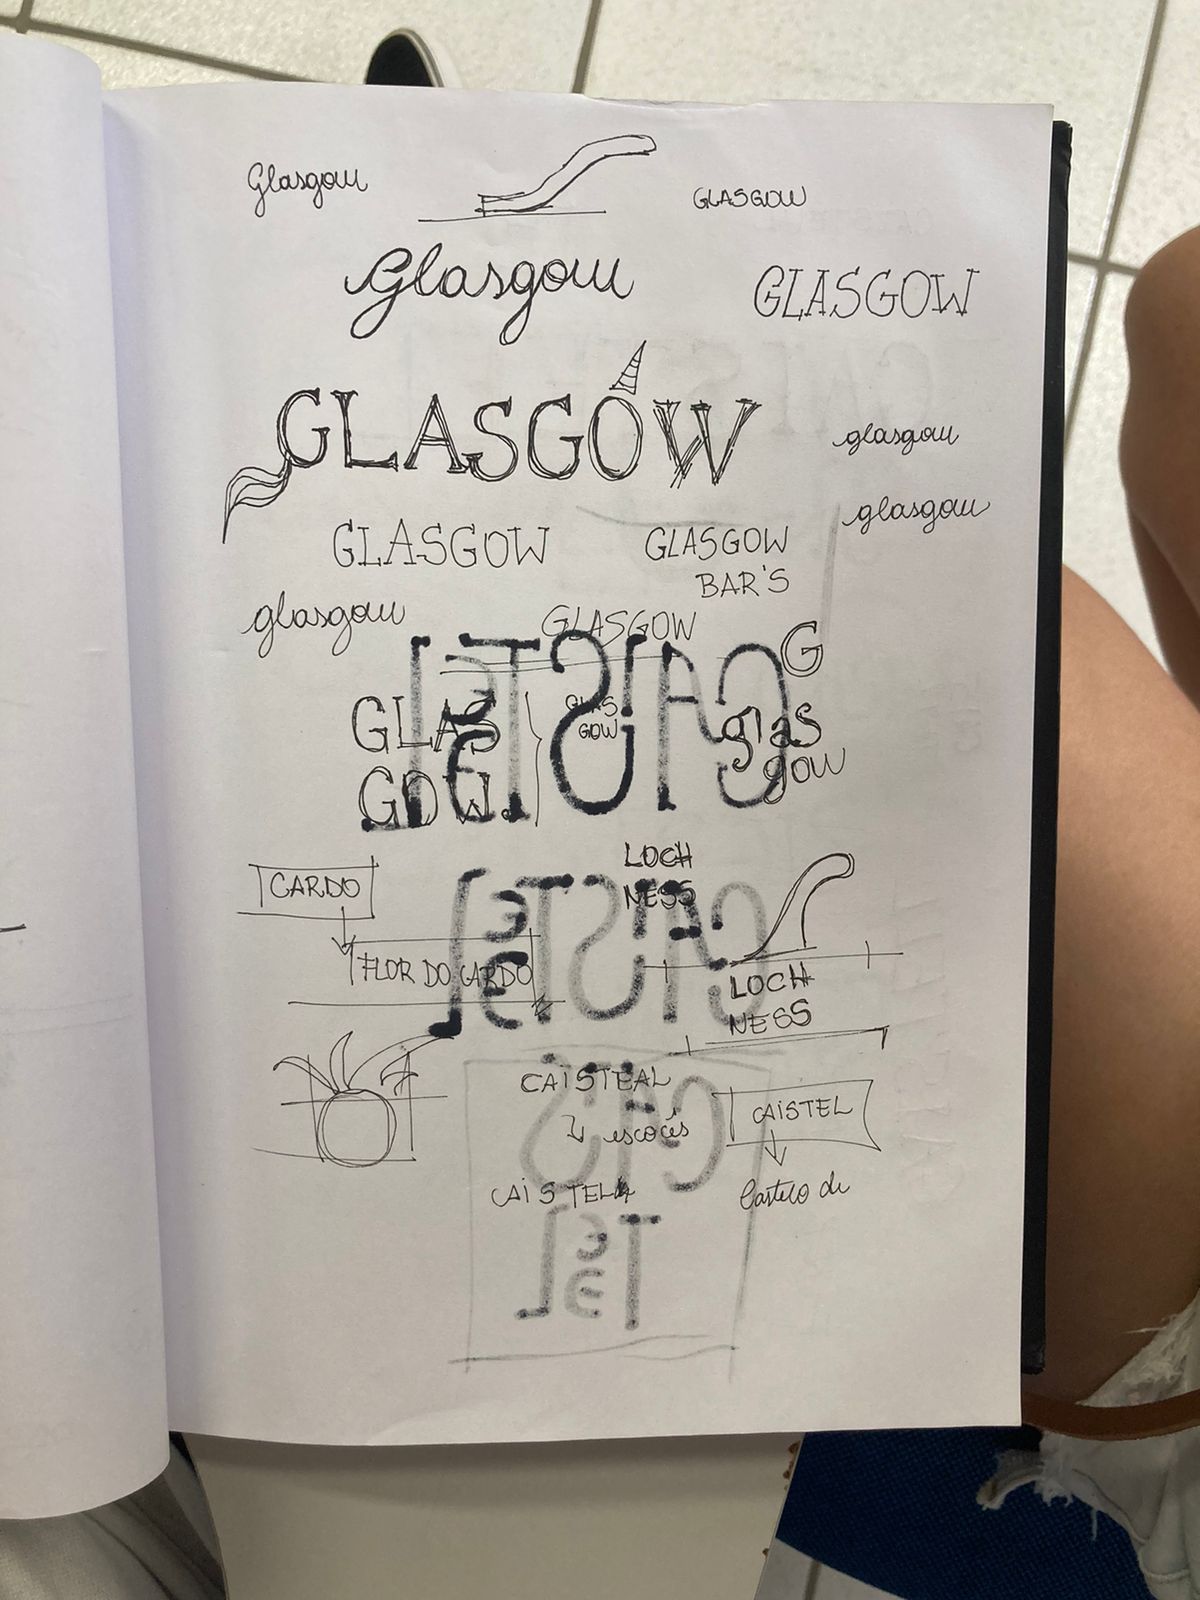 Glasgow
GLASGOW
Glasgow
GLASGOW
GLASGOW
glasgow
glasgow
GLASGOW
GLASGOW
BAR'S
glasgow
GLASGOW
G
GLAS
GOW.
GLAS
GOW
glas
gow
CAISTEL
LOCH
NESS
CARDO
FLOR DO CARDO
CAISTEL
LOCH
NESS
CAISTEAL
escocês
CAISTEL
CAISTELA
Castelo de
CAIS
TEL